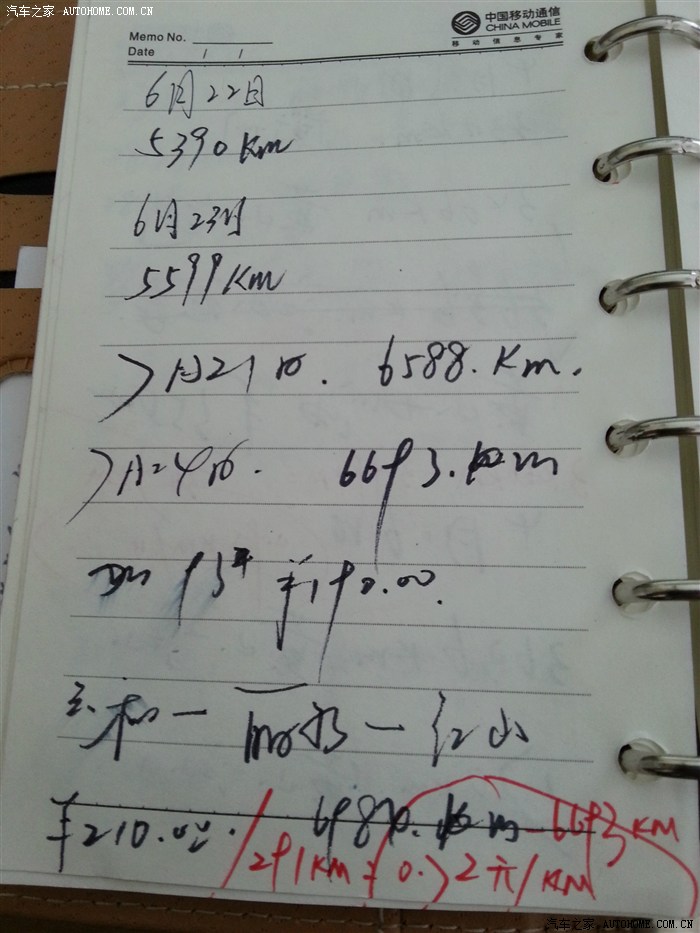 汽车之家 AUTOHOME.COM.CN
中国移动通信
CHINA MOBILE
移 动 信 息 专 家
Memo No.
Date / /
6月22日
5390 Km
6月23日
5599 Km
7月21日. 6588. Km.
7月24日. 6693. Km
93# ¥190.00.
红山
¥210.00. 6984. 6693 KM
/291KM = 0.72元/KM
汽车之家 WWW.AUTOHOME.COM.CN